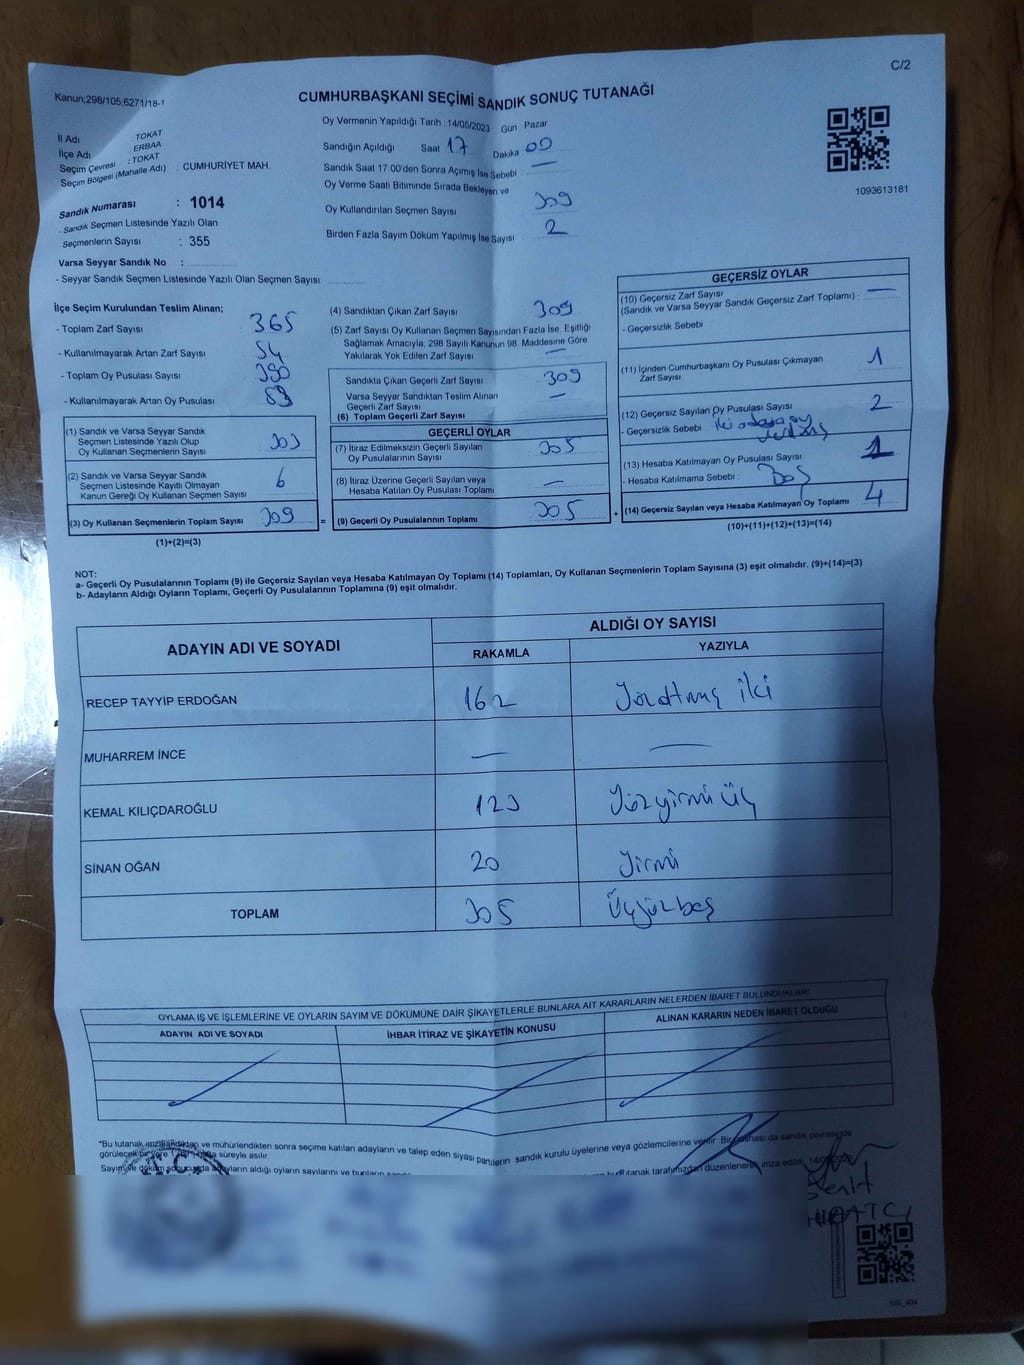 C/2
Kanun;298/105;6271/18-1
CUMHURBAŞKANI SEÇİMİ SANDIK SONUÇ TUTANAĞI
İl Adı : TOKAT
İlçe Adı : ERBAA
Seçim Çevresi : TOKAT
Seçim Bölgesi (Mahalle Adı) : CUMHURİYET MAH.
Sandık Numarası : 1014
- Sandık Seçmen Listesinde Yazılı Olan
Seçmenlerin Sayısı : 355
Varsa Seyyar Sandık No :
- Seyyar Sandık Seçmen Listesinde Yazılı Olan Seçmen Sayısı
Oy Vermenin Yapıldığı Tarih : 14/05/2023 Gün Pazar
Sandığın Açıldığı Saat 17 Dakika 00
Sandık Saat 17:00'den Sonra Açımış İse Sebebi : —
Oy Verme Saati Bitiminde Sırada Bekleyen ve
Oy Kullandırılan Seçmen Sayısı 309
Birden Fazla Sayım Döküm Yapılmış İse Sayısı : 2
1093613181
İlçe Seçim Kurulundan Teslim Alınan;
- Toplam Zarf Sayısı 365
- Kullanılmayarak Artan Zarf Sayısı 54
- Toplam Oy Pusulası Sayısı 390
- Kullanılmayarak Artan Oy Pusulası 83
(1) Sandık ve Varsa Seyyar Sandık
Seçmen Listesinde Yazılı Olup
Oy Kullanan Seçmenlerin Sayısı 303
(2) Sandık ve Varsa Seyyar Sandık
Seçmen Listesinde Kayıtlı Olmayan
Kanun Gereği Oy Kullanan Seçmen Sayısı 6
(3) Oy Kullanan Seçmenlerin Toplam Sayısı 309 =
(1)+(2)=(3)
(4) Sandıktan Çıkan Zarf Sayısı 309
(5) Zarf Sayısı Oy Kullanan Seçmen Sayısından Fazla İse, Eşitliği
Sağlamak Amacıyla, 298 Sayılı Kanunun 98. Maddesine Göre
Yakılarak Yok Edilen Zarf Sayısı —
Sandıkta Çıkan Geçerli Zarf Sayısı 309
Varsa Seyyar Sandıktan Teslim Alınan
Geçerli Zarf Sayısı —
(6) Toplam Geçerli Zarf Sayısı
GEÇERLİ OYLAR
(7) İtiraz Edilmeksizin Geçerli Sayılan
Oy Pusulalarının Sayısı 305
(8) İtiraz Üzerine Geçerli Sayılan veya
Hesaba Katılan Oy Pusulası Toplamı —
(9) Geçerli Oy Pusulalarının Toplamı 305 +
GEÇERSİZ OYLAR
(10) Geçersiz Zarf Sayısı —
(Sandık ve Varsa Seyyar Sandık Geçersiz Zarf Toplamı) :
- Geçersizlik Sebebi
(11) İçinden Cumhurbaşkanı Oy Pusulası Çıkmayan
Zarf Sayısı 1
(12) Geçersiz Sayılan Oy Pusulası Sayısı 2
- Geçersizlik Sebebi iki adaya oy
(13) Hesaba Katılmayan Oy Pusulası Sayısı 1
- Hesaba Katılmama Sebebi : Boş
(14) Geçersiz Sayılan veya Hesaba Katılmayan Oy Toplamı 4
(10)+(11)+(12)+(13)=(14)
NOT:
a- Geçerli Oy Pusulalarının Toplamı (9) ile Geçersiz Sayılan veya Hesaba Katılmayan Oy Toplamı (14) Toplamları, Oy Kullanan Seçmenlerin Toplam Sayısına (3) eşit olmalıdır. (9)+(14)=(3)
b- Adayların Aldığı Oyların Toplamı, Geçerli Oy Pusulalarının Toplamına (9) eşit olmalıdır.
ADAYIN ADI VE SOYADI ALDIĞI OY SAYISI
RAKAMLA YAZIYLA
RECEP TAYYİP ERDOĞAN 162 Yüzaltmış iki
MUHARREM İNCE — —
KEMAL KILIÇDAROĞLU 123 Yüzyirmi üç
SİNAN OĞAN 20 Yirmi
TOPLAM 305 Üçyüzbeş
OYLAMA İŞ VE İŞLEMLERİNE VE OYLARIN SAYIM VE DÖKÜMÜNE DAİR ŞİKAYETLERLE BUNLARA AİT KARARLARIN NELERDEN İBARET BULUNDUKLARI
ADAYIN ADI VE SOYADI İHBAR İTİRAZ VE ŞİKAYETİN KONUSU ALINAN KARARIN NEDEN İBARET OLDUĞU
*Bu tutanak imzalandıktan ve mühürlendikten sonra seçime katılan adayların ve talep eden siyasi partilerin sandık kurulu üyelerine veya gözlemcilerine verilir. Bir nüshası da sandık çevresinde
görülecek bir yere 1 hafta süreyle asılır.
Sayım ve döküm sonucunda adayların aldığı oyların sayılarını ve bunların
tutanak tarafımızdan düzenlenerek imza edilir.